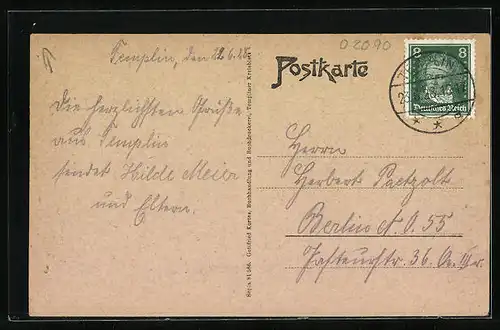 02090
Templin, den 22.6.28
Postkarte
8 8
Deutsches Reich
Die herzlichsten Grüße
aus Templin
sendet Hilde Meier
und Eltern.
Herrn
Herbert Paetzolt
Berlin N.O. 55
Pasteurstr. 36.
Gottfried Kurtze, Buchhandlung und Buchdruckerei, Templiner Kreisblatt